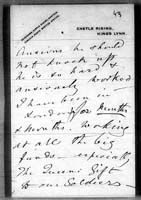 43
CASTLE RISING,
KINGS LYNN.
Anxious he should
not knock up
he is so hard &
anxiously worked
I have been in
London for months
& months. Working
at all the big
funds – especially
The Queens Gift
to our Soldiers